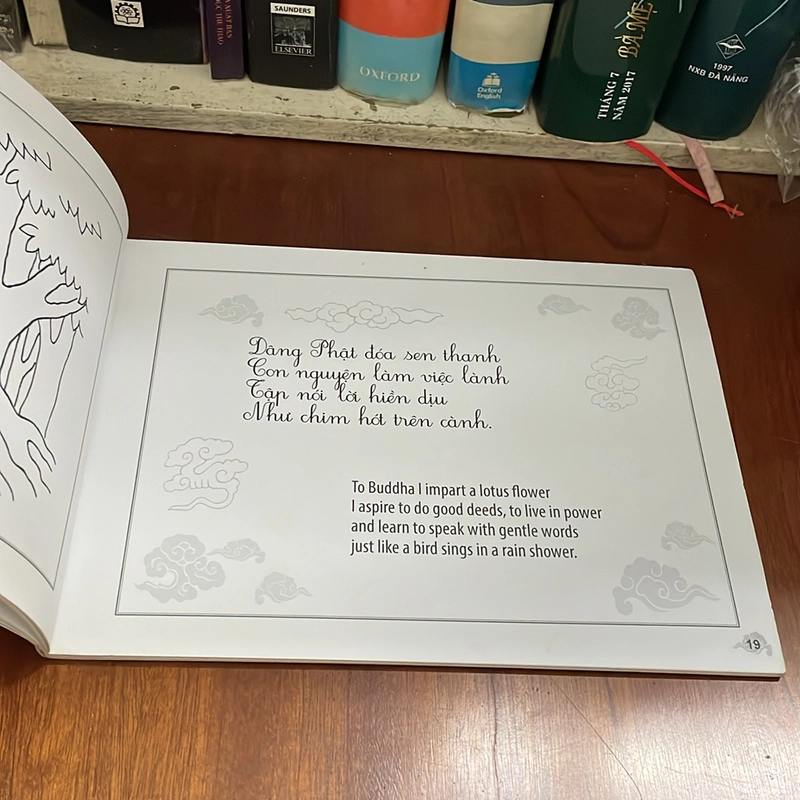 SAUNDERS
ELSEVIER
OXFORD
Oxford
English
THÁNG 7
NĂM 2017
1997
NXB ĐÀ NẴNG
Dâng Phật đóa sen thanh
Con nguyện làm việc lành
Tập nói lời hiền dịu
Như chim hót trên cành.
To Buddha I impart a lotus flower
I aspire to do good deeds, to live in power
and learn to speak with gentle words
just like a bird sings in a rain shower.
19